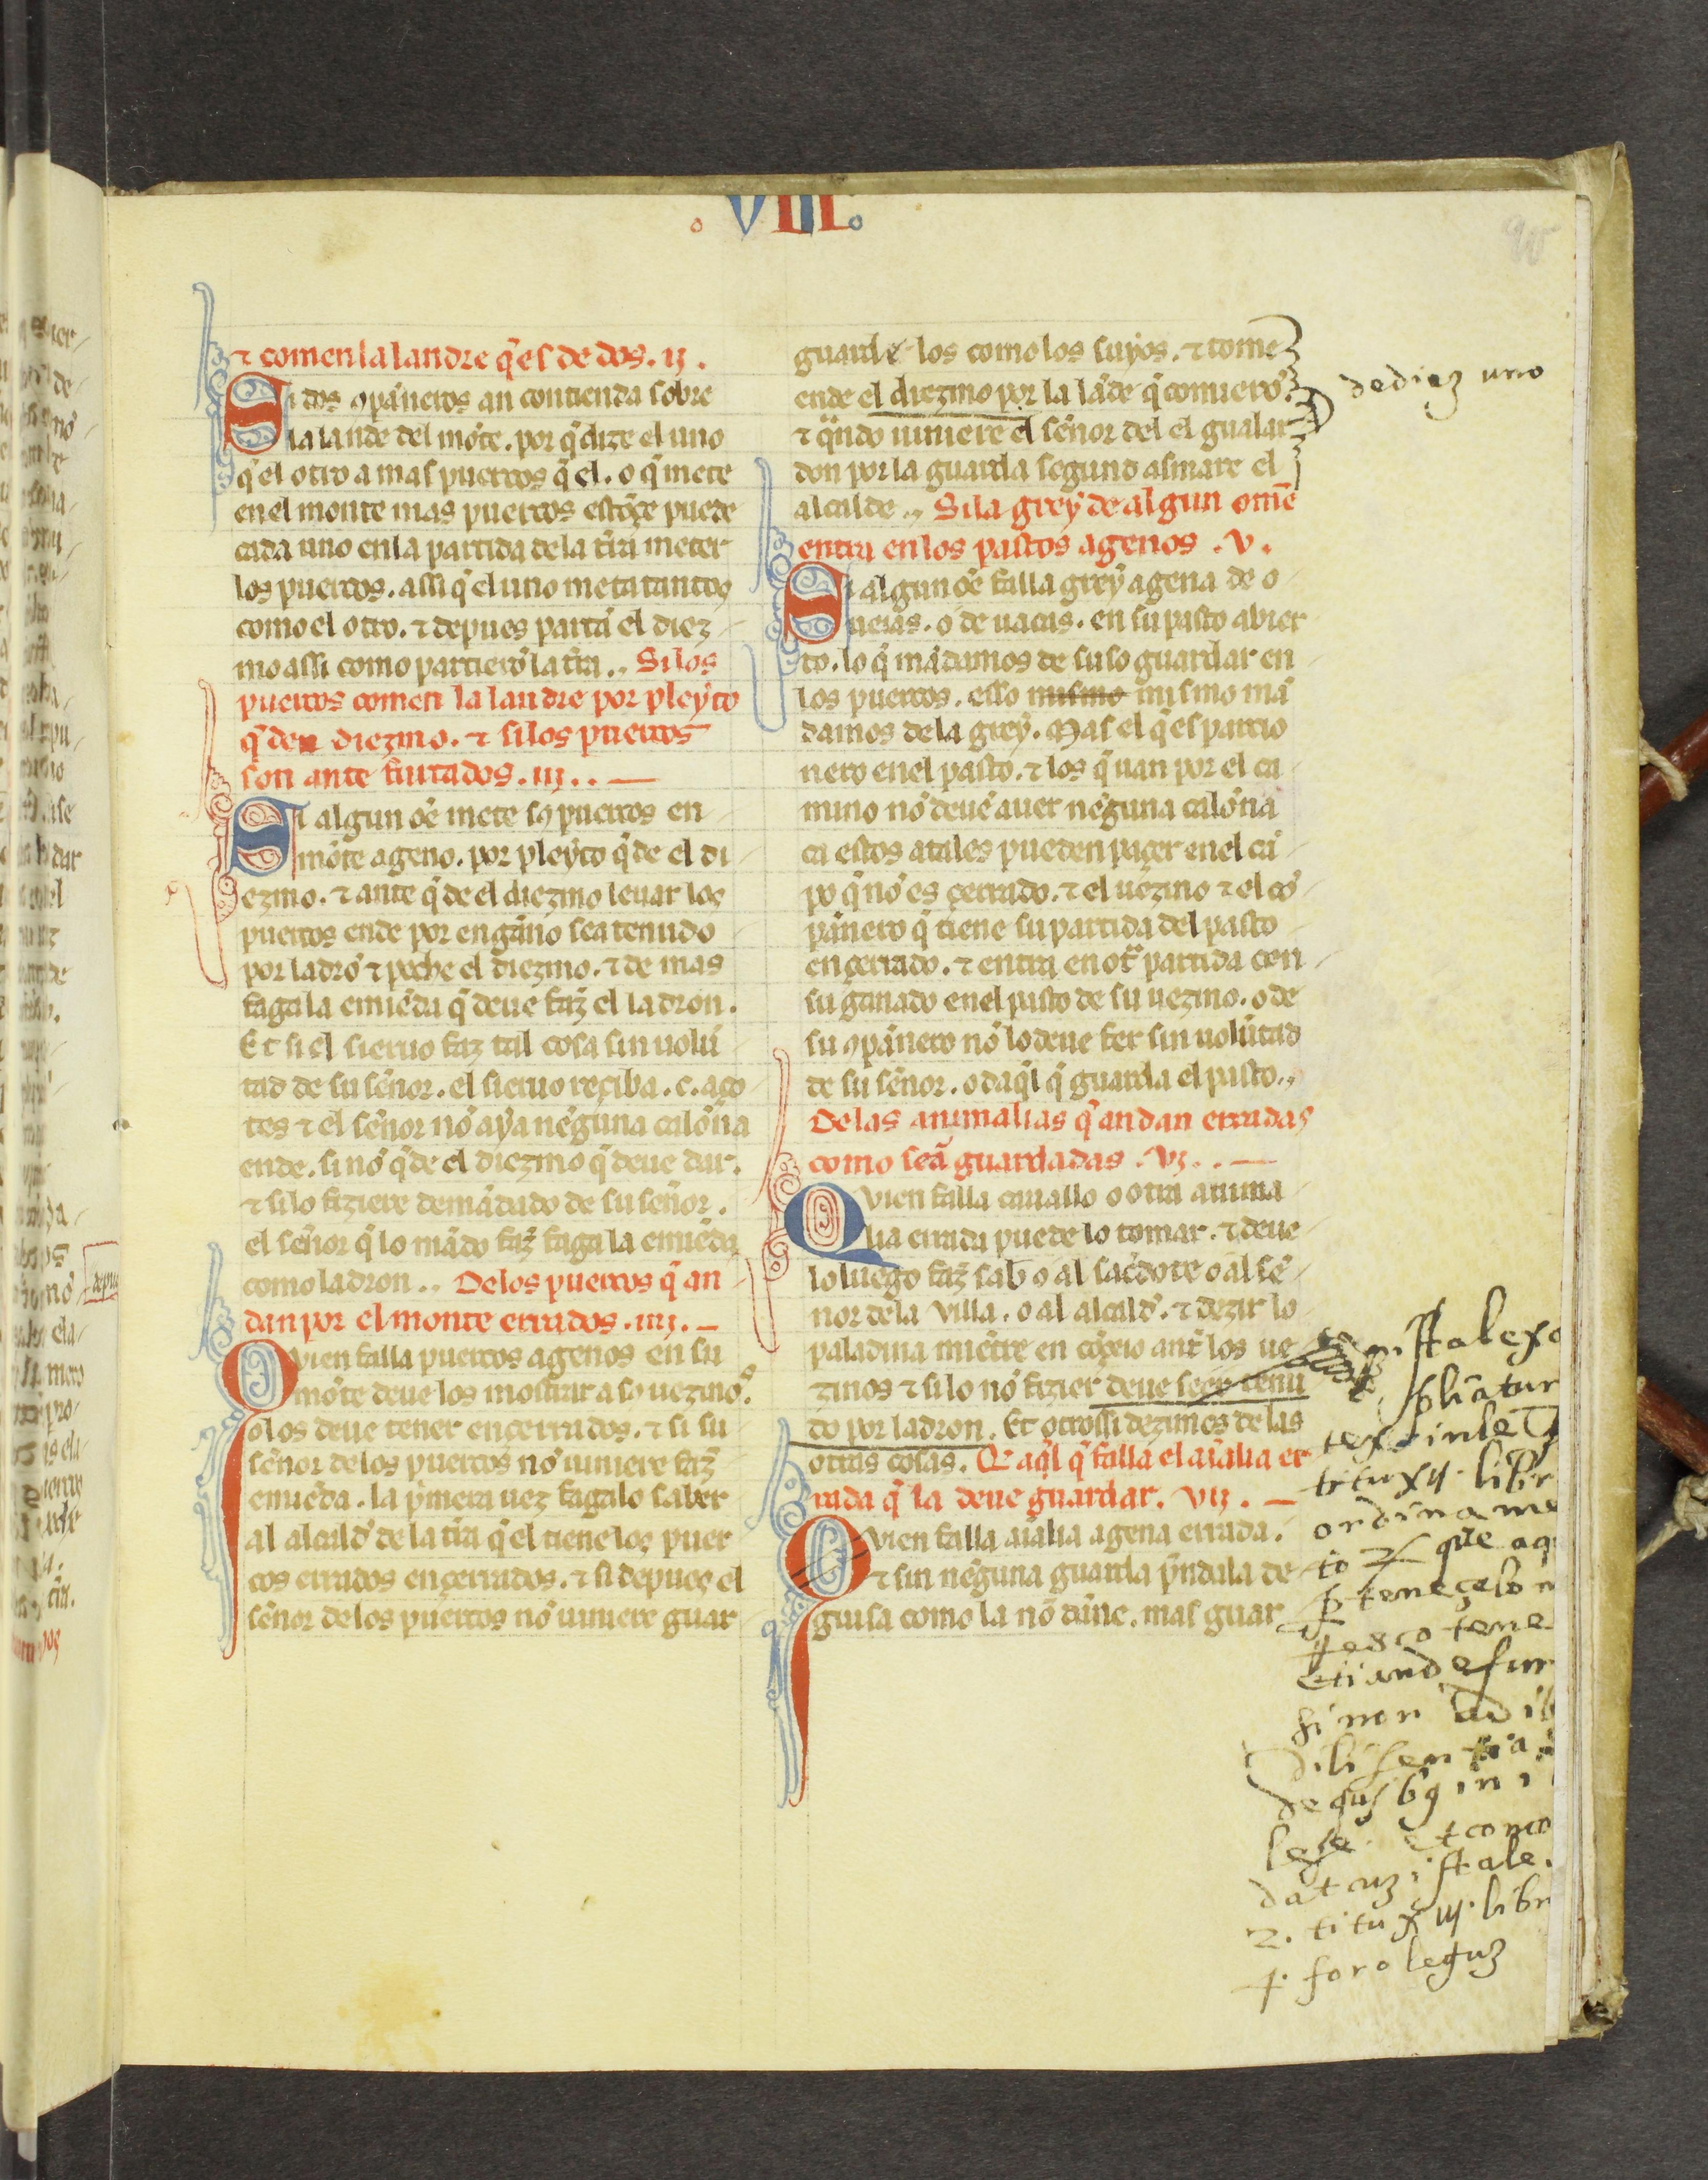 . VIII.
90
⁊ comen la landre q̃ es de dos. ij.
Si dos ꝯpan̄eros an contienda sobre
la lande del mõte. por q̃ dize el uno
q̃ el otro a mas puercos q̃ el. o q̃ mete
en el monte mas puercos estõçe puede
cada uno en la partida de la tr̃ra meter
los puercos. assi q̃ el uno meta tantos
como el otro. ⁊ depues partã el diez
mo assi como partierõ la tr̃ra.. Si los
puercos comen la landre por pleyto
q̃ den diezmo. ⁊ si los puercos
son ante furtados. iij..
Si algun oẽ mete sꝯ puercos en
mõte ageno. por pleyto q̃ de el di
ezmo. ⁊ ante q̃ de el diezmo leuar los
puercos ende por engan̄o sea tenudo
por ladrõ ⁊ peche el diezmo. ⁊ de mas
faga la emiẽda q̃ deue faz̃ el ladron.
Et si el sieruo faz tal cosa sin uolũ
tad de su sen̄or. el sieruo reçiba. c. aço
tes ⁊ el sen̄or nõ aya nẽguna calon̄a
ende. si nõ q̃ de el diezmo q̃ deue dar.
⁊ si lo fiziere demãdado de su sen̄or.
el sen̄or q̃ lo mãdo faz̃ faga la emiẽda
como ladron.. De los puercos q̃ an
dan por el monte errados. iiij.
Quien falla puercos agenos en su
mõte deue los mostrar a sꝯ uezinos.
o los deue tener ençerrados. ⁊ si su
sen̄or de los puercos nõ uiniere faz̃
emiẽda. la p̃mera uez fagalo saber
al alcald̃ de la tr̃ra q̃ el tiene los puer
cos errados ençerrados. ⁊ si depues el
sen̄or de los puercos nõ uiniere guar
guarde los como los suyos. ⁊ tome
ende el diezmo por la lãde q̃ comierõ.
⁊ q̃ndo uiniere el sen̄or del el gualar
don por la guarda segund asmare el
alcalde.. Si la grey de algun ome
entra en los pastos agenos. v.
Si algun oẽ falla grey agena de o
ueias. o de uacas. en su pasto abier
to. lo q̃ mãdamos de suso guardar en
los puercos. esso mismo mismo mã
damos de la grey. Mas el q̃ es parcio
nero en el pasto. ⁊ los q̃ uan por el ca
mino nõ deuẽ auer nẽguna calon̄a
ca estos atales pueden paçer en el cã
po q̃ nõ es çerrado. ⁊ el uezino ⁊ el cõ
pan̄ero q̃ tiene su partida del pasto
ençerrado. ⁊ entra en otr̃ partida con
su ganado en el pasto de su uezino. o de
su ꝯpan̄ero nõ lo deue fer sin uolũtad
de su sen̄or. o daq̃l q̃ guarda el pasto..
De las animalias q̃ andan erradas
como seã guardadas. vj..
Quien falla cauallo o otra anima
lia errada puede lo tomar. ⁊ deue
lo luego faz̃ sab̃ o al sac̃dote o al se
n̄or de la villa. o al alcald̃. ⁊ dezir lo
paladina miẽtre en cõçeio ant̃ los ue
zinos ⁊ si lo nõ fizier deue seer tenu
do por ladron. Et otrossi dezimos de las
otras cosas. Q̃ aq̃l q̃ falla el aĩalia er
rada q̃ la deue guardar. vij.
Quien falla aĩalia agena errada.
⁊ sin nẽguna guarda p̃ndala de
guisa como la nõ dan̄e. mas guar
de diez uno
ista lex a
pliatur
lex in le
titu xij. libr
ordiname
to ⁊ que aq
p teneçe lo n
tene
etiand e fur
si non ad ib
diligentia
de quib9 in i
lege. et conco
dat cuz ista le.
2. titu xiij. libr
4. foro leguz